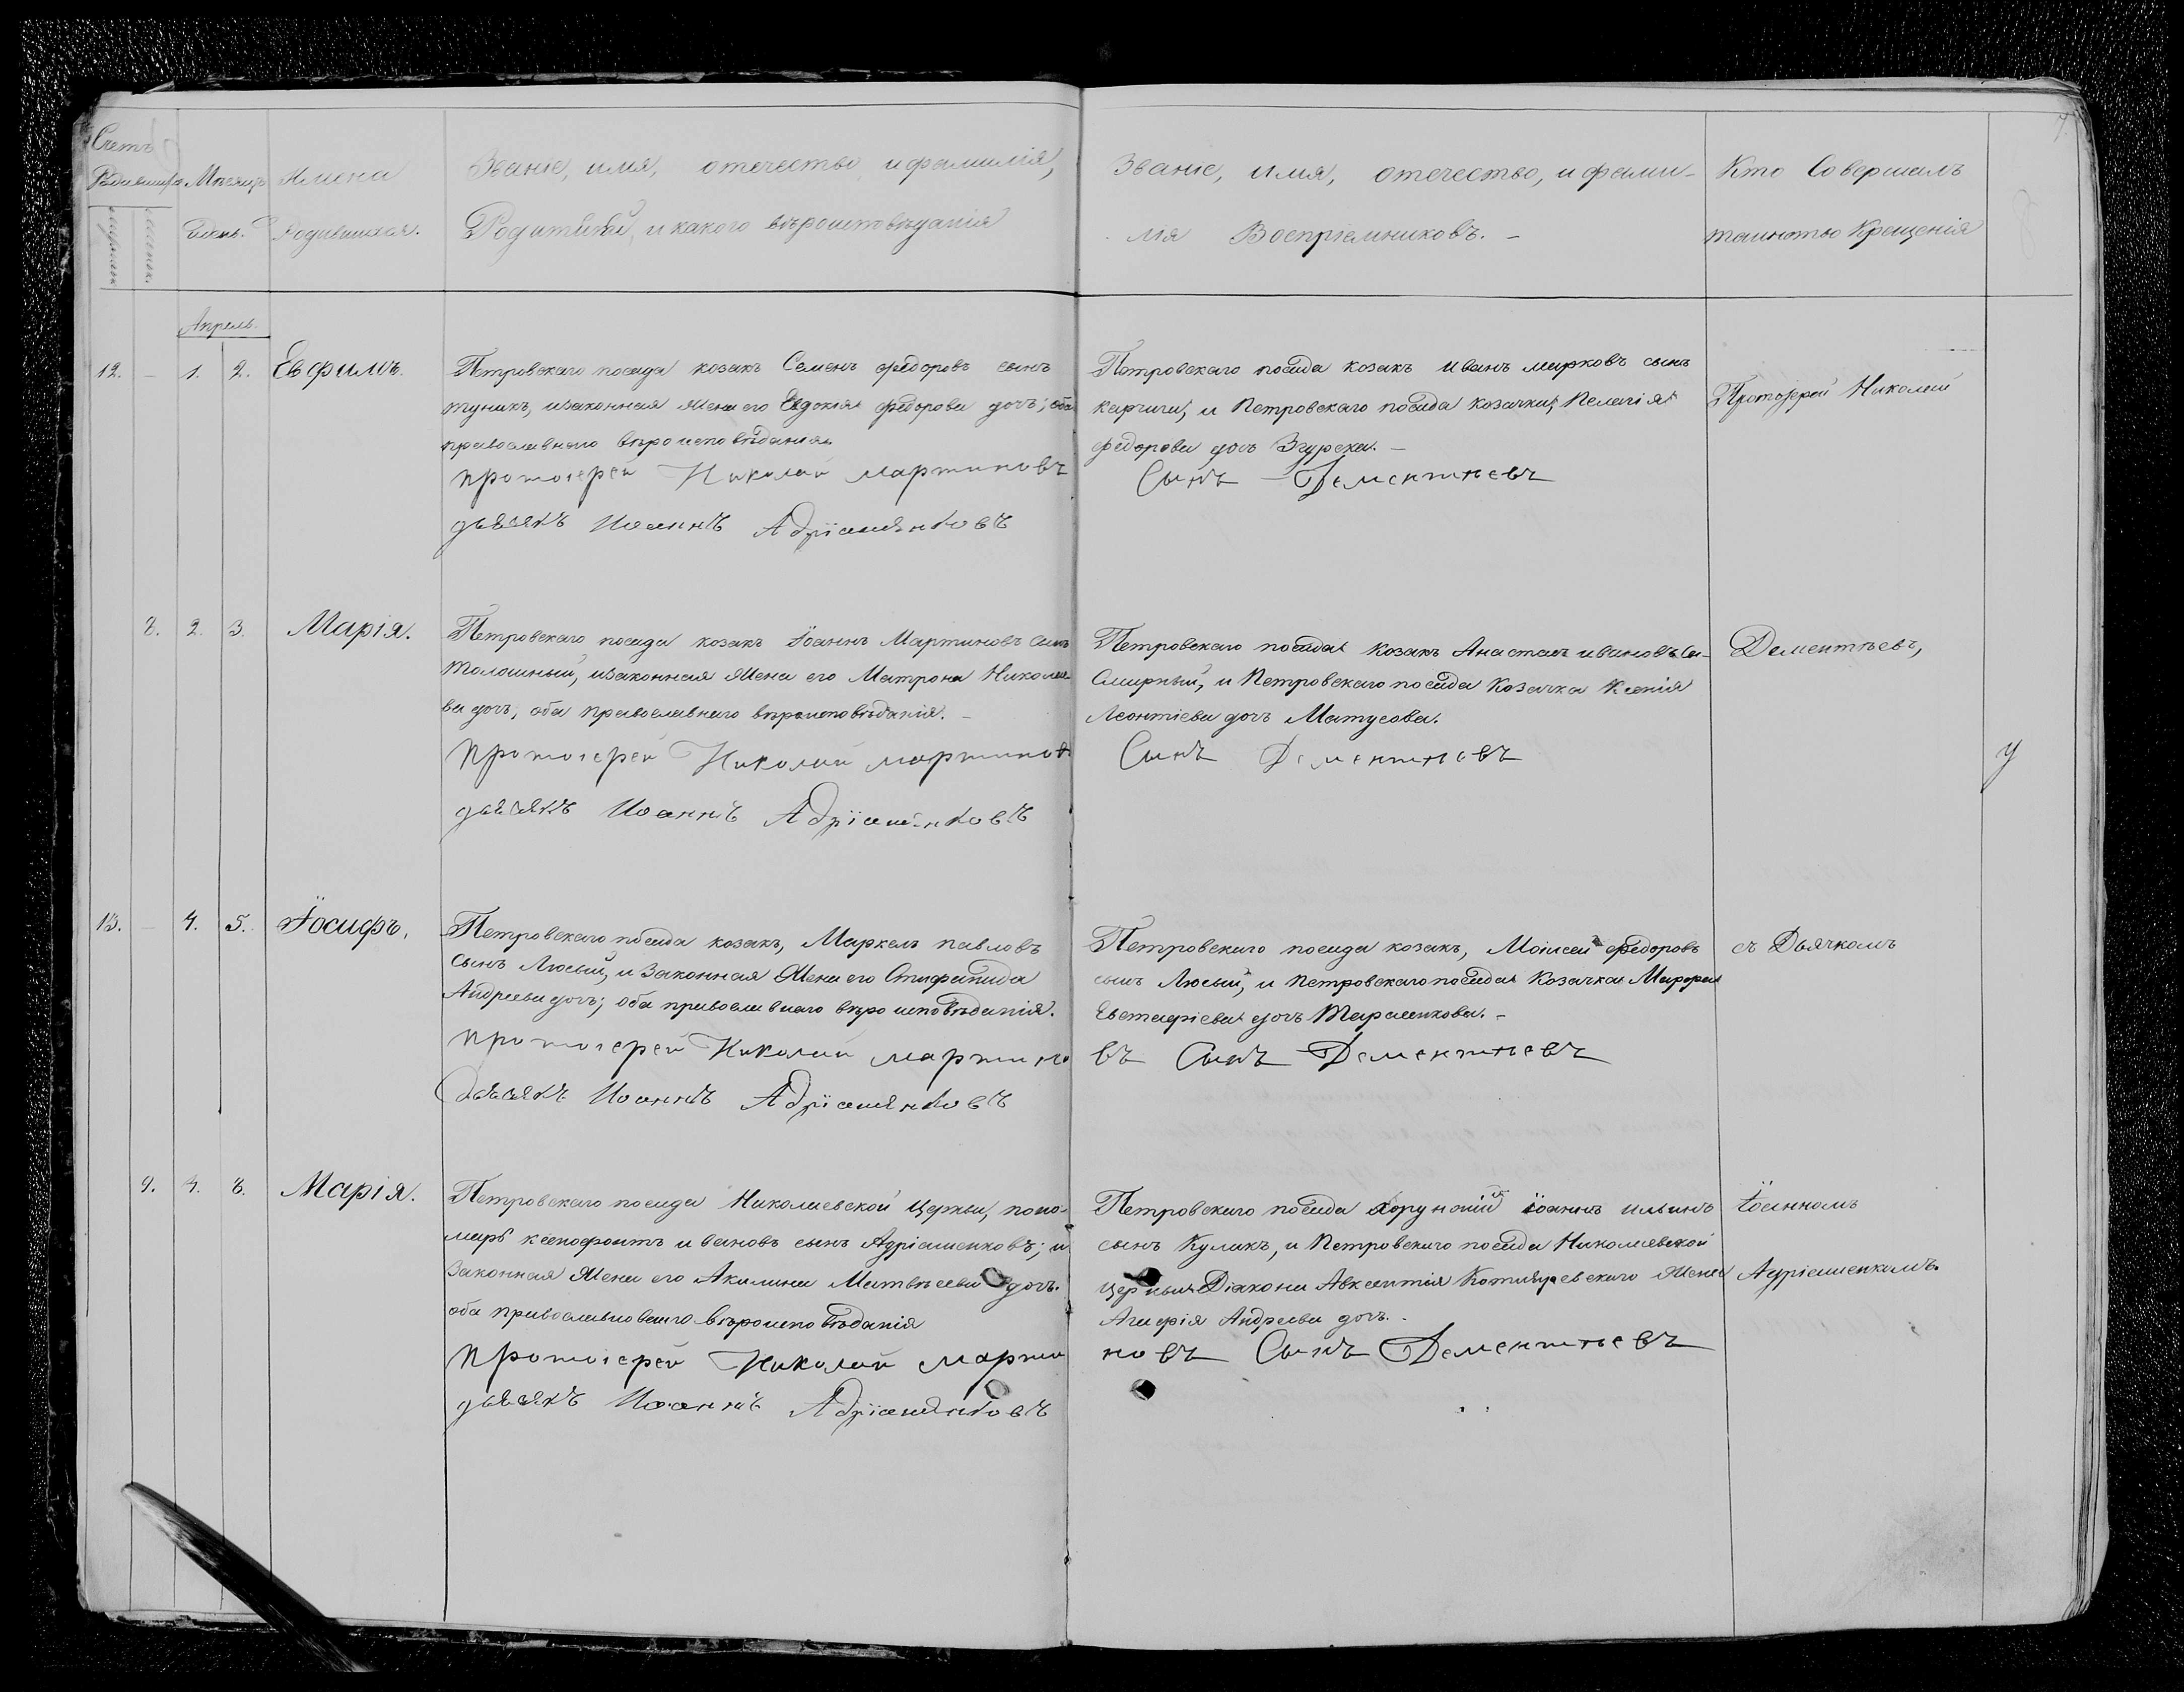 Счетъ
Родившихся
Мѣсяцъ
День.
Имена
Родившихся.
Званіе, имя, отечество и фамилія,
Родителей, и какого вѣроисповѣданія
Званіе, имя, отечество, и фами-
лія Воспріемниковъ. -
Кто Совершалъ
таинство Крещенія
7.
Апрель.
12. - 1. 2. Евфимъ.
Петровскаго посада козакъ Семенъ Федоровъ сынъ
тупикъ, изаконная жена его Евдокія Федорова дочъ; оба
православнаго вѣроисповѣданія
протоіерей Николай Мартиновъ
дьячокъ Иоаннъ Адріяшенковъ
Петровскаго посада козакъ Иванъ Марковъ сынъ
карчига, и Петровскаго посада козачка, Пелагія
Федорова дочъ Згурска. -
Сынъ Дементьевъ
Протоіерей Николай
8. 2. 3. Марія.
Петровскаго посада козакъ Іоаннъ Мартиновъ сынъ
Толошный, изаконная жена его Матрона Николае-
ва дочъ, оба православнаго вѣроисповѣданія. -
протоіерей Николай Мартинов
дьячокъ Иоаннъ Адріяшенковъ
Петровскаго посада козакъ Анастасъ ивановъ
Смирный, и Петровскаго посада Козачка Ксенія
Леонтіева дочъ Матусова.
Сынъ Дементьевъ
Дементьевъ,
у
13. - 4. 5. Іосифъ.
Петровскаго посада козакъ, Маркелъ павловъ
сынъ Люсый, и Законная Жена его Стефанида
Андреева дочъ; оба православнаго вѣроисповѣданія.
протоіерей Николай Мартино
дьячокъ Иоаннъ Адріяшенковъ
Петровскаго посада козакъ, Моисей Федоровъ
сынъ Люсый, и Петровскаго посада Козачка Марфа
Евстафіева дочъ Тарасенкова. -
въ Сынъ Дементьевъ
съ Дьячкомъ
9. 4. 8. Марія.
Петровскаго посада Николаевской Церкви, поно-
марь ксенофонтъ ивановъ сынъ Адріашенковъ; и
Законная Жена его Акилина Матвѣева дочъ.
оба православнаго вѣроисповѣданія
протоіерей Николай Марти
дьячокъ Иоаннъ Адріяшенковъ
Петровскаго посада хорунжій іоаннъ ильинъ
сынъ Куликъ, и Петровскаго посада Николаевской
церкви Діакона Авксентія Котляревскаго Жена
Агафія Андреева дочъ.
новъ Сынъ Дементьевъ
Іоанномъ
Адріашенкомъ.